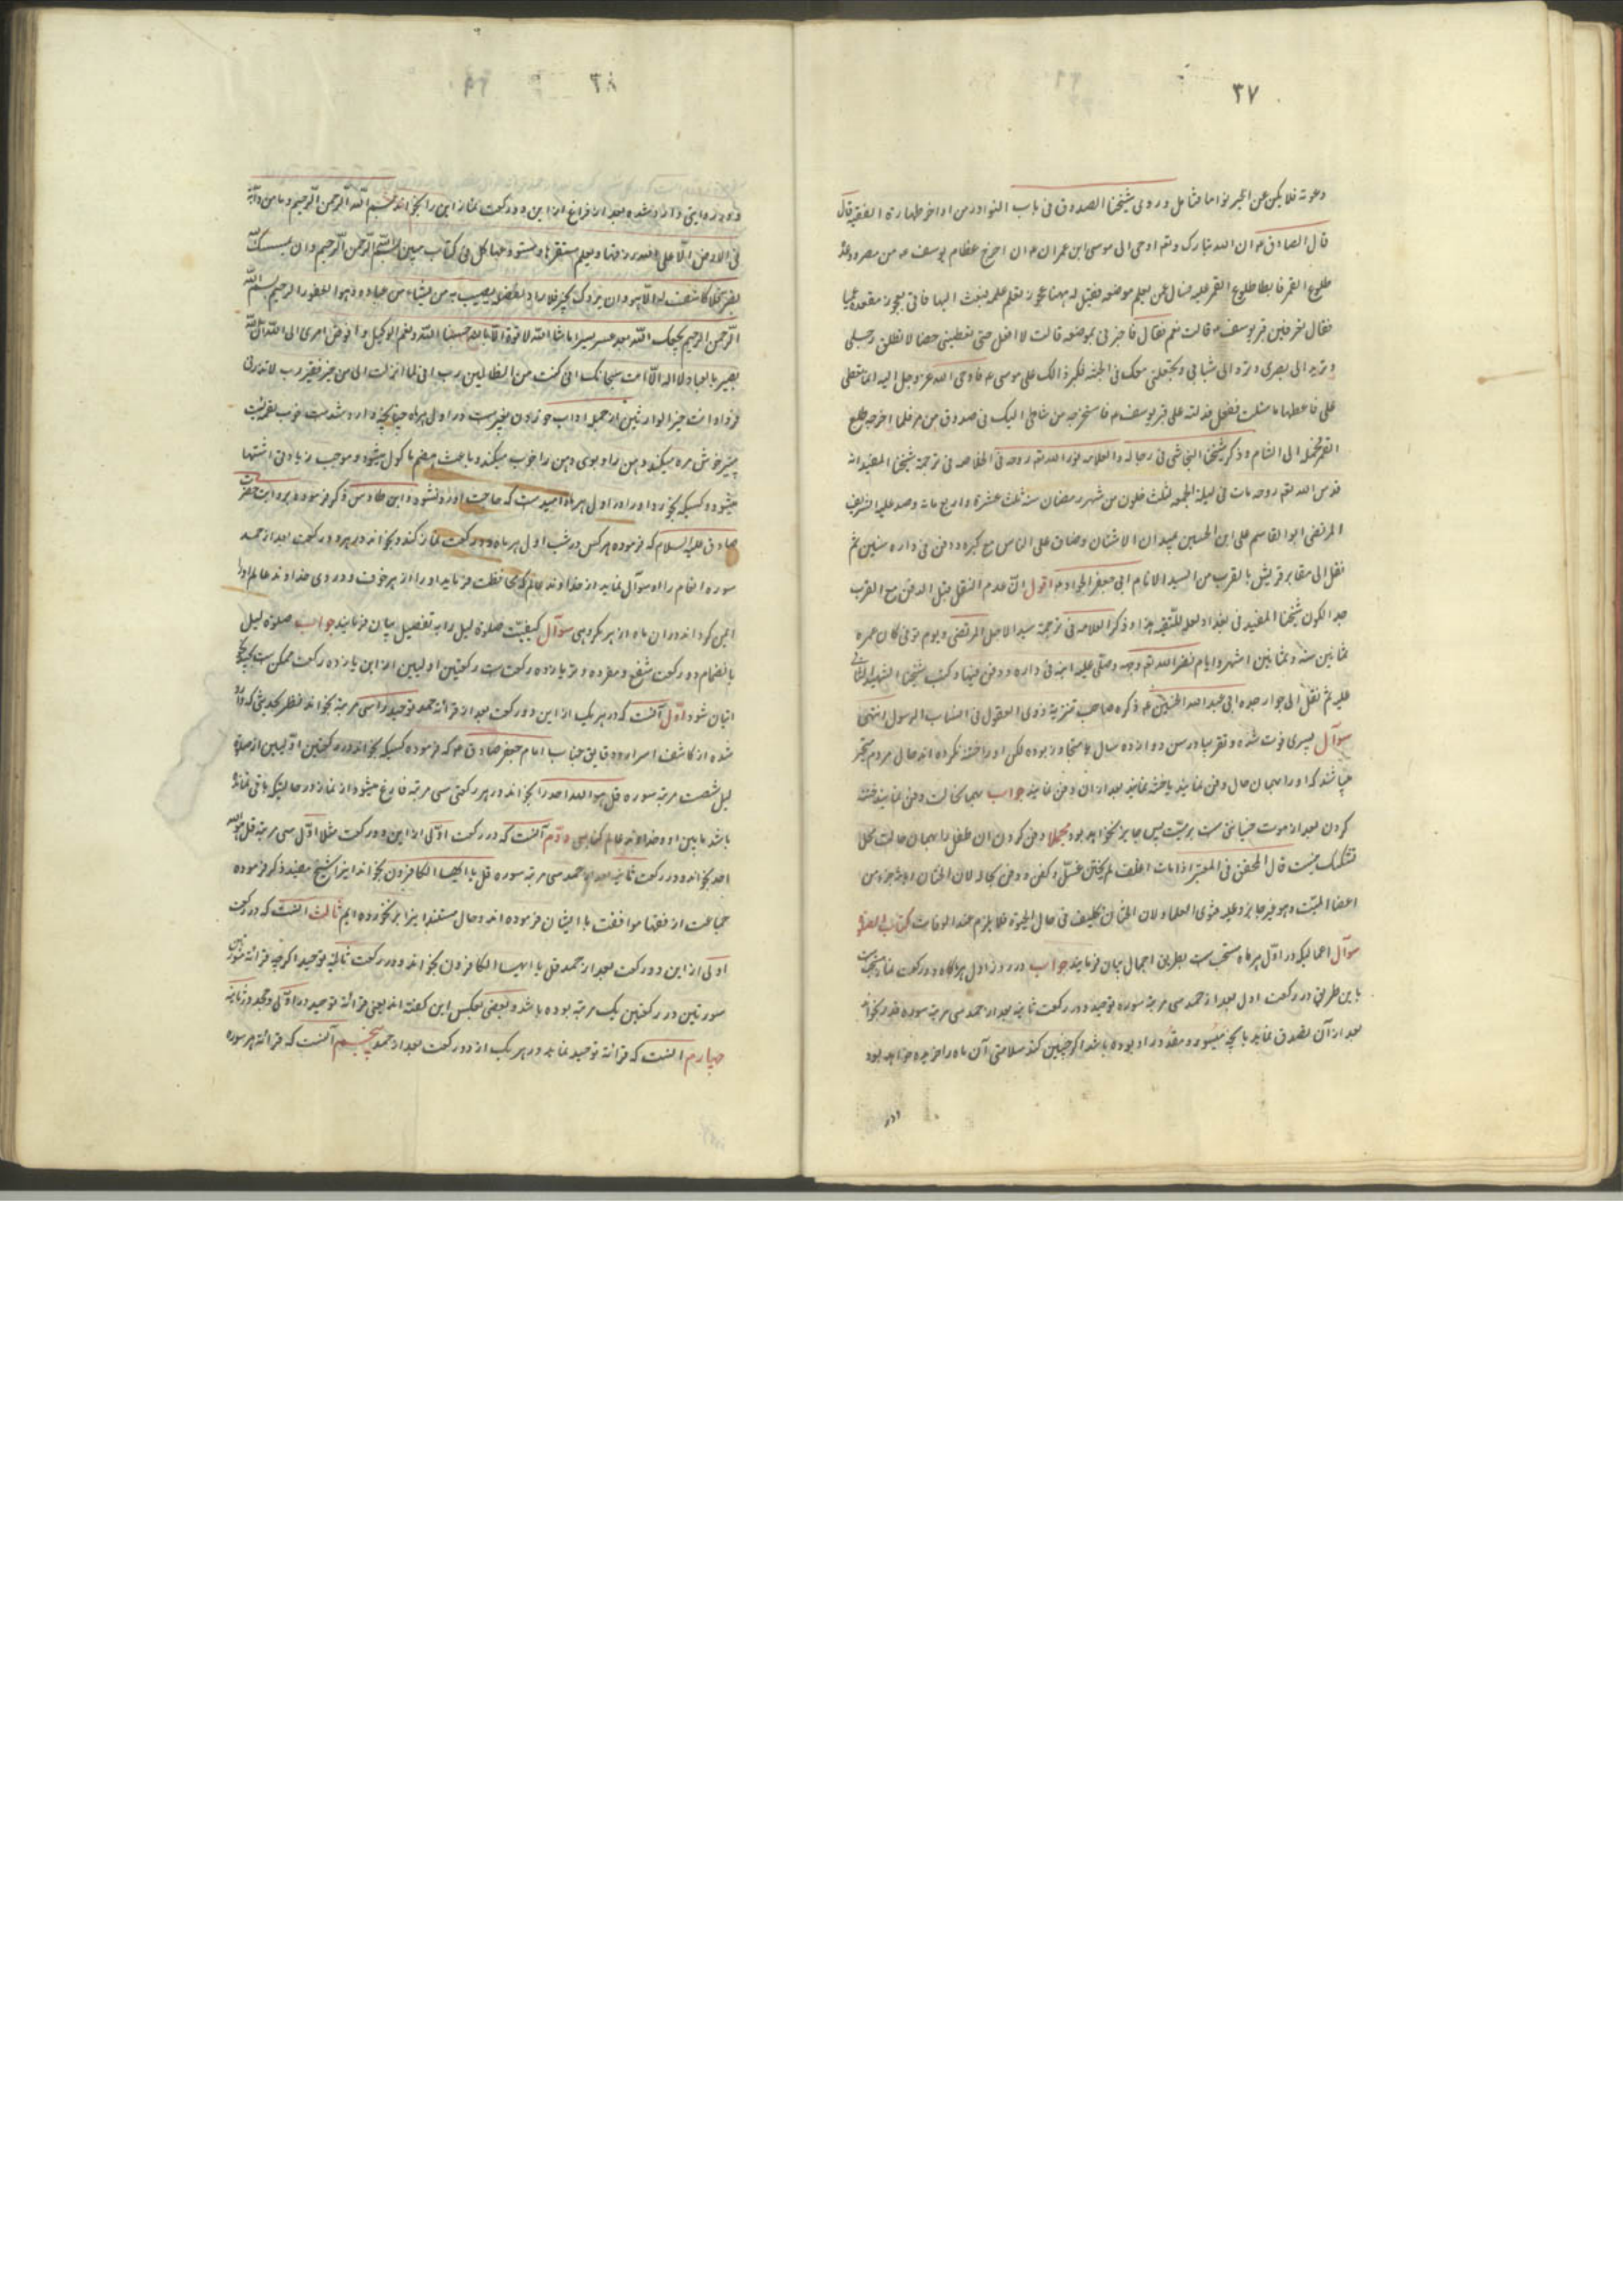 ۳۷
دعوته فلا یکن عن الخبر نواما فتامل وروی شیخنا الصدوق فی باب النوادر من اواخر طهارة الفقیه قال
قال الصادق ع ان الله تبارک وتع اوحی الی موسی ابن عمران ع ان اخرج عظام یوسف ع من مصر ووعده
طلوع القمر فابطا طلوع القمر علیه فسال عمن یعلم موضعه فقیل له ههنا عجوز تعلم علمه فبعث الیها فاتی بعجوز مقعدة عمیا
فقال تعرفین قبر یوسف ع قالت نعم فقال فاخبرنی بموضعه قالت لا افعل حتی تعطینی خصالا تطلق رجلی
وترد الی بصری وترد الی شبابی وتجعلنی معک فی الجنه فکبر ذالک علی موسی ع فاوحی الله عز وجل الیه انما تعطی
علی فاعطها ما سئلت ففعل فدلته علی قبر یوسف ع فاستخرجه من شاطی النیل فی صندوق مرمر فلما اخرجه طلع
القمر فحمله الی الشام وذکر شیخنا النجاشی فی رجاله والعلامه نور الله تع روحه فی الخلاصه فی ترجمة شیخنا المفید انه
قدس الله تع روحه مات فی لیلة الجمعه لثلث خلون من شهر رمضان سنه ثلث عشرة واربع مات وصلی علیه الشریف
المرتضی ابو القاسم علی ابن الحسین بمیدان الاشنان وضاق علی الناس مع کبره ودفن فی داره سنین ثم
نقل الی مقابر قریش بالقرب من السید الامام ابی جعفر الجواد ع اقول ان عدم النقل قبل الدفن مع القرب
جدا لکون شیخنا المفید فی بغداد لعله للتقیه هذا وذکر العلامه فی ترجمة سید الاجل المرتضی ویوم توفی کان عمره
ثمانین سنة وثمانین اشهر وایام نضر الله تع وجهه وصلی علیه ابنه فی داره ودفن فیها وکتب شیخنا الشهید الثانی
علیه ثم نقل الی جوار جده ابی عبد الله الحسین ع ذکره صاحب تنزیه ذوی العقول فی انساب ال رسول انتهی
سوآل پسری فوت شده و تقریبا در سن دوازده سال یا متجاوز بوده لکن او را ختنه نکرده اند حال مردم متحیر
میباشند که او را بهمان حال دفن نمایند یا ختنه نمایند بعد از ان دفن نمایند جواب بهمان حالت دفن نمایند ختنه
کردن بعد از موت خیانتی ست بر میت پس جایز نخواهد بود مجملا دفن کردن ان طفل را بهمان حالت محل
تشکیک نیست قال المحقق فی المعتبر اذا مات اغلف لم یختن غسل وکفن ودفن بحاله لان الختان اخذ جزء من
اعضا المیت وهو غیر جایز وعلیه فتوی العلما ولان الختان تکلیف فی حال الحیوة فلا یلزم عند الوفات کتاب الصلوة
سوآل اعمالیکه در اول هر ماه مستحب ست بطریق اجمال بیان فرمایند جواب در روز اول هر ماه دو رکعت نماز مستحب ست
باین طریق در رکعت اول بعد از حمد سی مرتبه سوره توحید و در رکعت ثانیه بعد از حمد سی مرتبه سوره قدر بخواند
بعد از آن تصدق نماید بانچه میسور و مقدور او بوده باشد اگر چنین کند سلامتی آن ماه را خریده خواهد بود
ودر
۳۸
ودر روایتی وارد شده بعد از فراغ از این دو رکعت نماز این را بخواند بسم الله الرحمن الرحیم وما من دآبة
فی الارض الا علی الله رزقها ویعلم مستقرها ومستودعها کل فی کتاب مبین بسم الله الرحمن الرحیم وان یمسسک الله
بضر فلا کاشف له الا هو وان یردک بخیر فلا راد لفضله یصیب به من یشاء من عباده وهو الغفور الرحیم بسم الله
الرحمن الرحیم سیجعل الله بعد عسر یسرا ما شا الله لا قوة الا بالله حسبنا الله ونعم الوکیل وافوض امری الی الله ان الله
بصیر بالعباد لا اله الا انت سبحانک انی کنت من الظالمین رب انی لما انزلت الی من خیر فقیر رب لا تذرنی
فردا وانت خیر الوارثین از جمله اداب خوردن پنیرست در اول هر ماه چنانچه وارد شده ست خوب لقمه ایست
پنیر خوش مزه میکند دهن را و بوی دهن را خوب میکند و باعث هضم ماکول میشود و موجب زیادتی اشتها
میشود و کسیکه بخورد او را در اول هر ماه امید ست که حاجت او رد نشود و ابن طاوس ذکر فرموده بروایت حضرت
صادق علیه السلام که فرموده هر کس در شب اول هر ماه دو رکعت نماز کند و بخواند در هر دو رکعت بعد از حمد
سوره انعام را و سوآل نماید از خداوند عالم که محافظت فرماید او را از هر خوف و دردی خداوند عالم او را
ایمن گرداند در ان ماه از هر مکروهی سوآل کیفیت صلوة لیل را به تفصیل بیان فرمایند جواب صلوة لیل
بانضمام دو رکعت شفع و مفرده وتر یازده رکعت ست رکعتین اولیین از این یازده رکعت ممکن ست بچند
اتیان شود اول آنست که در هر یک از این دو رکعت بعد از قرائة حمد توحید را سی مرتبه بخواند نظر بحدیثی که وارد
شده از کاشف اسرار و دقایق جناب امام جعفر صادق ع که فرموده کسیکه بخواند در رکعتین اولیین از صلوة
لیل شصت مرتبه سوره قل هو الله احد را بخواند در هر رکعتی سی مرتبه فارغ میشود از نماز در حالتیکه باقی نمانده
باشد ما بین او و خداوند عالم گناهی دوم آنست که در رکعت اولی از این دو رکعت مثلا اول سی مرتبه قل هو الله
احد بخواند و در رکعت ثانیه بعد از حمد سی مرتبه سوره قل یا ایها الکافرون بخواند اینرا شیخ مفید ذکر فرموده
جماعت از فقها موافقت با ایشان فرموده اند و حال مستند اینرا بر نخورده ایم ثالث انست که در رکعت
اولی از این دو رکعت بعد از حمد قل یا ایها الکافرون بخواند و در رکعت ثانیه توحید اگرچه قرائة سورتین
سورتین در رکعتین یک مرتبه بوده باشد و بعضی بعکس این گفته اند یعنی قرائة توحید در اولی و جحد در ثانیه
چهارم انست که قرائة توحید نماید در هر یک از دو رکعت بعد از حمد پنجم آنست که قرائة هر سوره